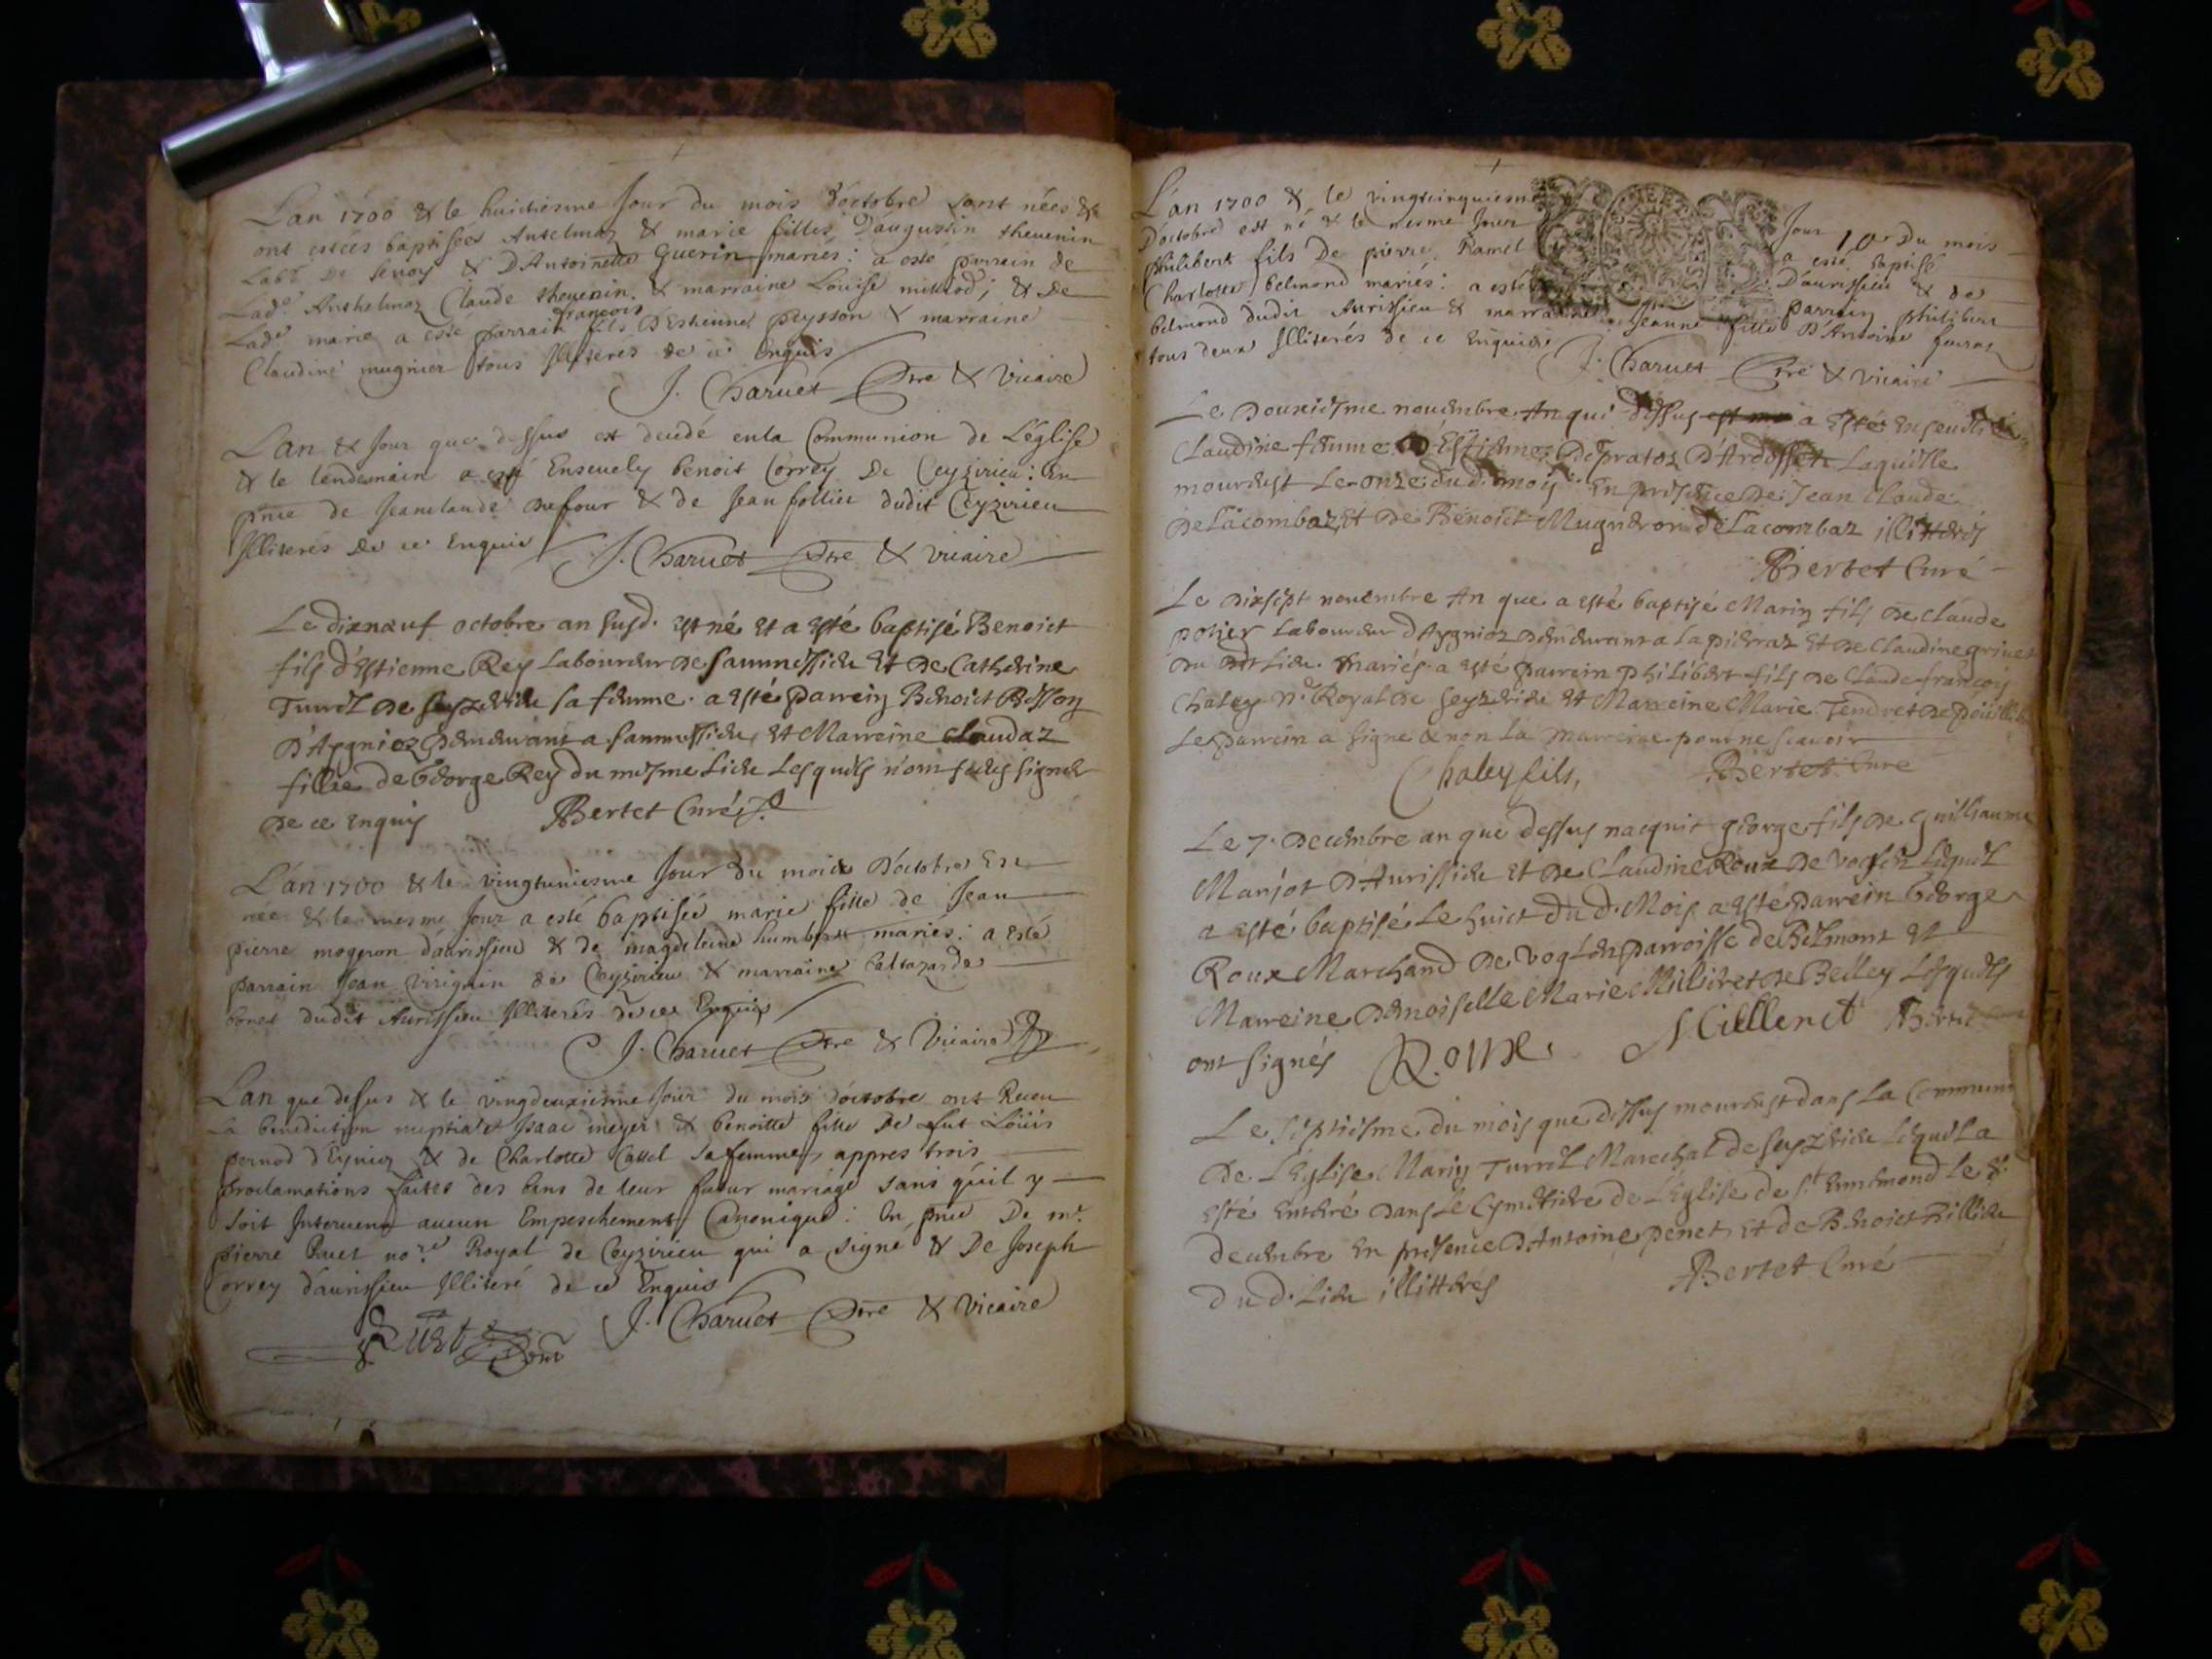 L'an 1700 & le huictiesme Jour du mois d'octobre sont nées &
ont estées baptisées Antelmaz & marie filles D'augustin thevenin
Labr De Senoy & D'Antoinette Guerin mariés: a esté parrain de
Lade Anthelmaz Claude thevenin & marraine Louise milliod; & de
françois
Lade marie a esté parrain fils D'Estienne peysson & marraine
Claudine mugnier tous Illiterés de ce Enquis
J. Charuet Ptre & Vicaire
L'an & Jour que dessus est decedé en la Communion de L'église
& le lendemain a esté Ensevely benoit Correy De Ceyzirieu: En
pnce de Jeanclaude Dufour & de Jean follies dudit Ceyzirieu
Illiterés de ce Enquis J. Charuet Ptre & vicaire
Le dixneuf octobre an susd. est né et a esté baptisé Benoict
fils d'Estienne Rey Laboureur de sammessieu et de Catherine
Turrel de seyzerieu sa femme. a esté parrein Benoict Besson
D'Aygnioz demeurant a sammessieu, et Marreine Claudaz
fillie de George Rey du mesme Lieu Lesquels n'ont sceus signer
de ce enquis Bertet Curé
L'an 1700 & le vingtuniesme Jour du mois D'octobre Est
née & le mesme Jour a esté baptisée marie fille de Jean
pierre mogeron d'aurissieu & de magdeleine humbert mariés: a Esté
parrain Jean Virignin de Ceyzirieu & marraine baltazarde
bonet dudit Aurissieu Illiterés de ce Enquis
J. Charuet Ptre & Vicaire
L'an que desus & le vingdeuxiesme Jour du mois d'octobre ont Receu
La benediction nuptiale Isaac meyer & benoitte fille De fut Loüis
pernod d'Eynioz & de Charlotte Cassel sa femme, appres trois
proclamations faites des bans de leur futur mariage sans qu'il y
soit Intervenu aucun Empeschement Canonique: En pnce De mr
pierre Ruet nore Royal de Ceyzirieu qui a signe & De Joseph
Correy d'aurissieu Illiteré de ce Enquis
Ruet J. Charuet Ptre & Vicaire
L'an 1700 & le vingtcinquiesme Jour 10r Du mois
D'octobre est né & le mesme Jour a esté baptisé
philibert fils De pierre Ramel D'aurissieu & de
Charlotte belmond mariés: a esté parrain philibert
belmond dudit Aurissieu & marraine Jeanne fille D'Antoine
tous deux Illiterés de ce Enquis
J. Charuet Ptre & vicaire
Le Douxiesme novembre An qui dessus est mo a Esté Ensevelie
Claudine femme d'Estienne Depratoz D'Ardosset Laquelle
mourust Le onze dud. mois En presence de Jean Claude
De Lacombaz Et de Benoict Mugneron de Lacombaz illitteres
Bertet Curé
Le dixsept novembre An que a esté baptisé Marin fils de Claude
potier Laboureur d'Aygnioz demeurant a La pierraz et de Claudine grivet
du dit Lieu mariés. a esté parrein philibert fils de Claude françois
Chaley Nre Royal de seyzerieu et Marreine Marie Tendret de
Le parrein a signé & non La marreine pour ne scavoir
Chaley fils, Bertet Curé
Le 7. decembre an que dessus nacquit george fils de guilliaume
Marjot D'Aurissieu et de Claudine Roux de voglen Lequel
a esté baptisé Le huict du d. Mois a esté parrein George
Roux Marchand de voglen parroisse de Belmont et
Marreine demoiselle Marie Milliret de Belley Lesquels
ont signés Roux Bertet
Le septiesme du mois que dessus mourust dans La Commun
De L'Eglise Marin Turrel Marechal de seyzerieu Lequel a
esté Enterré dans Le Cymetiere de L'Eglise de St Ennemond le 8.
decembre en presence D'Antoine penet, et de Benoict Billieu
du d. Lieu illitteres Bertet Curé